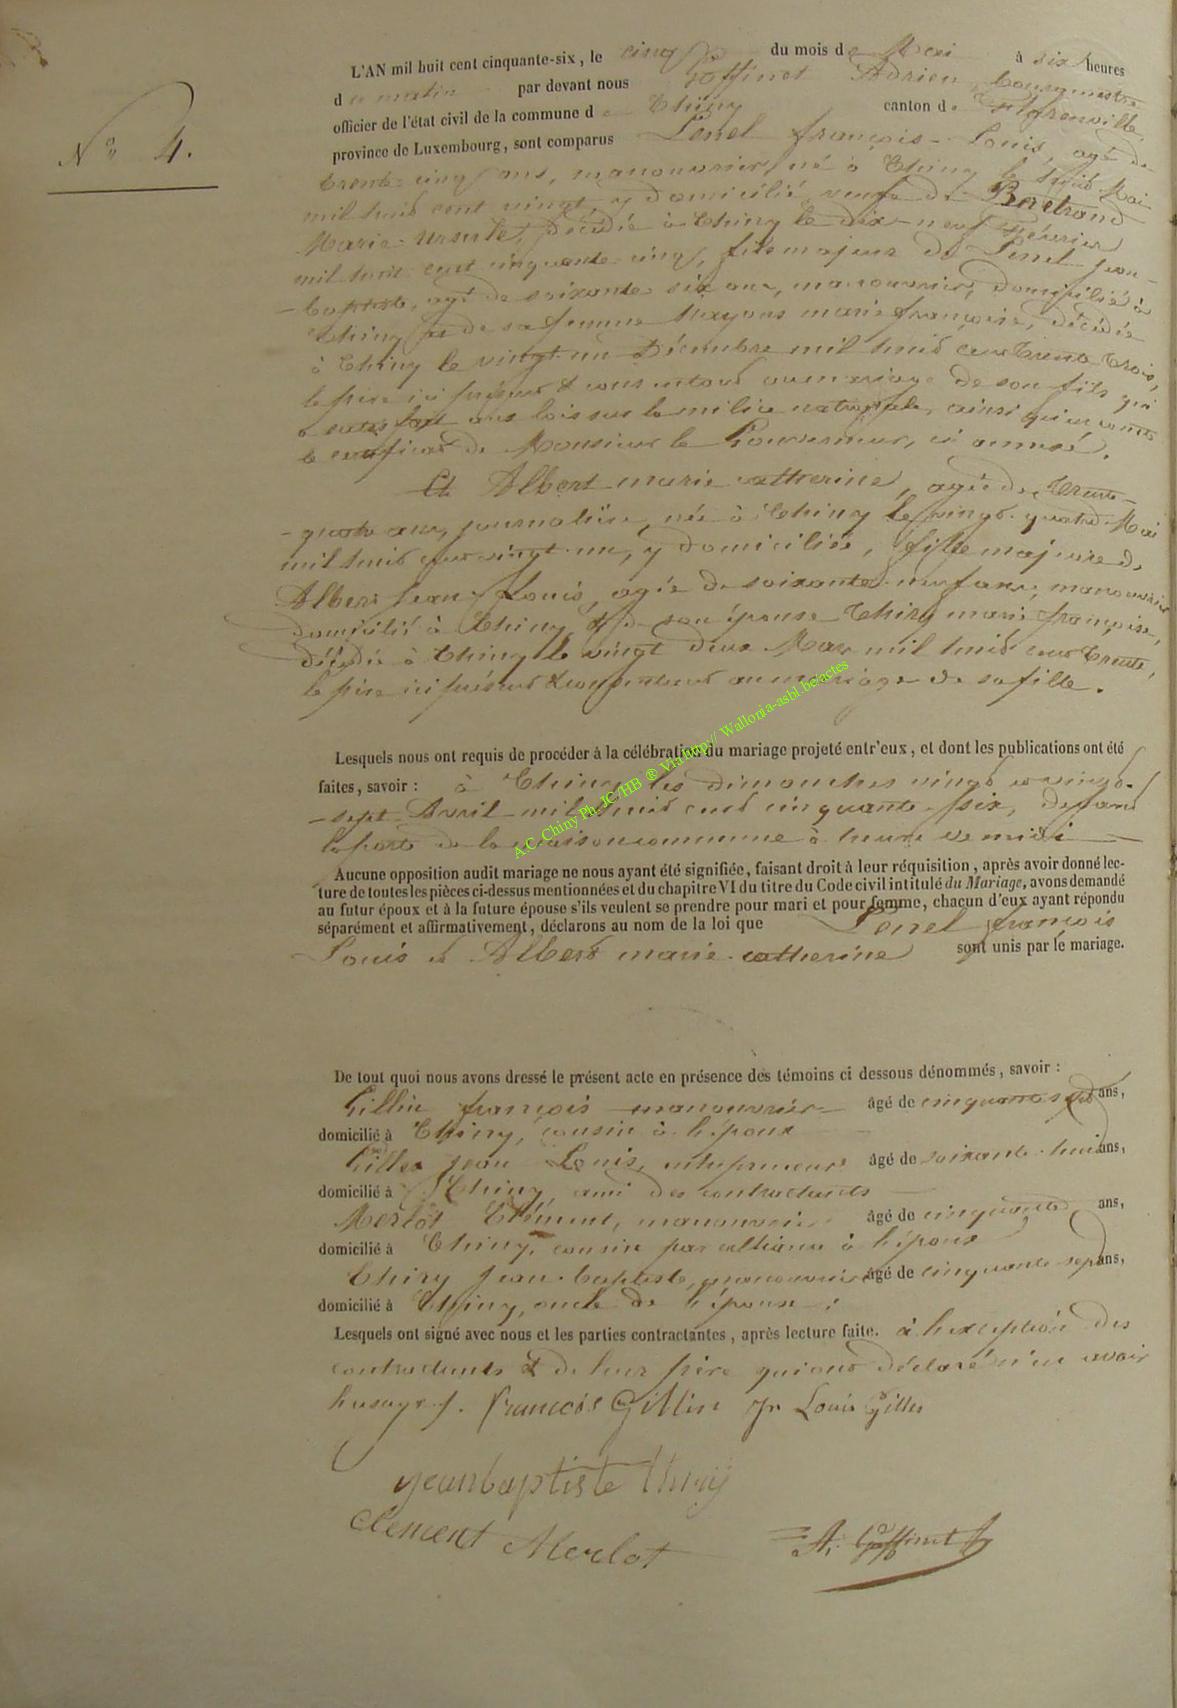 L'AN mil huit cent cinquante-six, le cinq du mois de Mai à six heures
du matin par devant nous Goffinet Adrien, bourgmestre
officier de l'état civil de la commune de Chiny canton de Florenville
province de Luxembourg, sont comparus Penel françois-Louis, agé de
N° 4.
trente-cinq ans, manouvrier, né à Chiny le huit Mai
mil huit cent vingt y domicilié, veuf de Bertrand
Marie-Ursule, décédée à Chiny le dix-neuf février
mil huit cent cinquante-cinq, fils majeur de Penel Jean-
-baptiste, agé de soixante six ans, manouvrier, domicilié à
Chiny et de sa femme marie françoise, décédée
à Chiny le vingt-un Décembre mil huit cent trente trois,
le père ici présent & consentant au mariage de son fils qui
a satisfait aux lois sur la milice nationale, ainsi qu'en conste
le certificat de Monsieur le Gouverneur, ci annexé.
Et Albert marie catherine, agée de trente-
-quatre ans, journalière, née à Chiny le vingt-quatre Mai
mil huit cent vingt-un, y domiciliée, fille majeure de
Albert Jean Louis, agé de soixante-neuf ans, manouvrier
domicilié à Chiny & de son épouse Thiry marie françoise,
décédée à Chiny le vingt deux Mars mil huit cent trente,
le père ici présent & consentant au mariage de sa fille.
Lesquels nous ont requis de procéder à la célébration du mariage projeté entr'eux, et dont les publications ont été
faites, savoir : à Chiny les dimanches vingt et vingt-
-sept Avril mil huit cent cinquante-six, devant
la porte de la maison commune à heure de midi
Aucune opposition audit mariage ne nous ayant été signifiée, faisant droit à leur réquisition, après avoir donné lec-
ture de toutes les pièces ci-dessus mentionnées et du chapitre VI du titre du Code civil intitulé du Mariage, avons demandé
au futur époux et à la future épouse s'ils veulent se prendre pour mari et pour femme, chacun d'eux ayant répondu
séparément et affirmativement, déclarons au nom de la loi que Penel françois
Louis et Albert marie-catherine sont unis par le mariage.
De tout quoi nous avons dressé le présent acte en présence des témoins ci dessous dénommés, savoir :
Gillin françois manouvrier âgé de cinquante sept ans,
domicilié à Chiny, cousin à l'époux
Gilles Jean Louis, entrepreneur âgé de soixante-huit ans,
domicilié à Chiny, ami des contractants
Merlot Clément, manouvrier âgé de cinquante ans,
domicilié à Chiny, cousin par alliance à l'époux
Thiry Jean-baptiste, manouvrier âgé de cinquante sept ans,
domicilié à Chiny, oncle de l'épouse.
Lesquels ont signé avec nous et les parties contractantes, après lecture faite. à l'exception des
contractants & de leur père qui ont déclaré n'en avoir
l'usage. françois Gillin Jn Louis Gilles
jeanbaptiste thiry
clement Merlot
A. Goffinet
A.C. Chiny Ph. JC/HB ® Via http:// Wallonia-asbl.be/actes